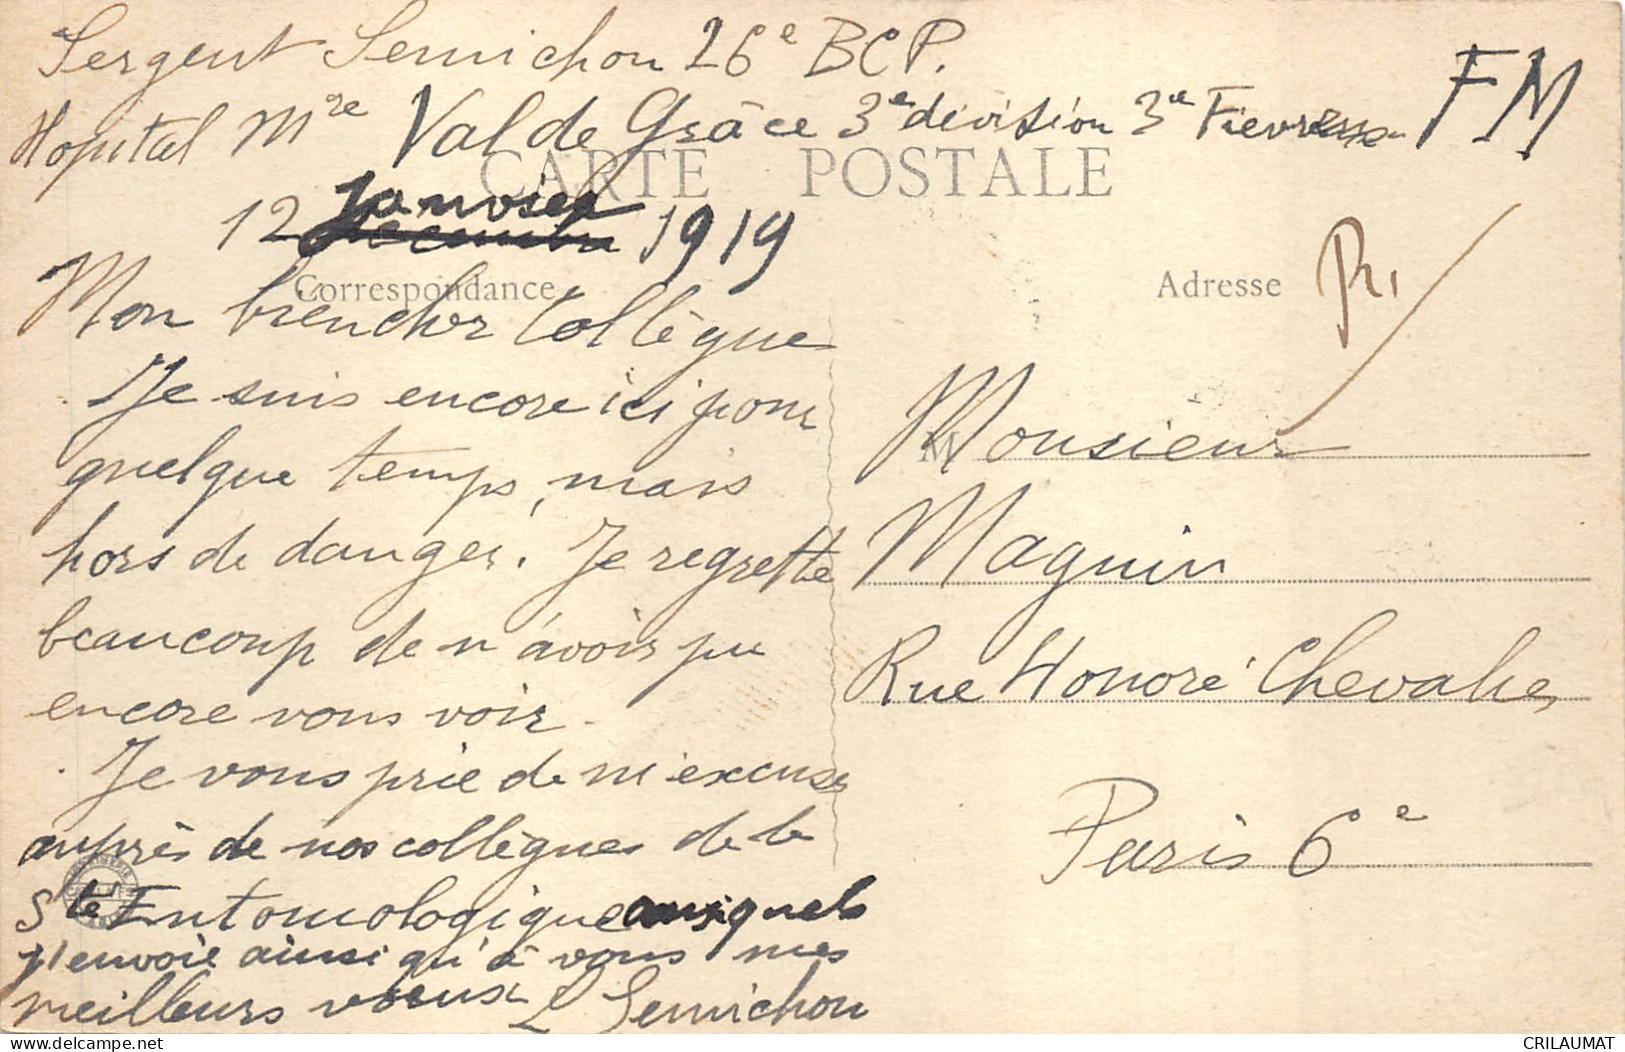 Sergent Semichon 26e BCP.
FM
Hopital Mre Val de Grâce 3e division 3e Fievreux
CARTE POSTALE
12 Janvier 1919
Correspondance
Adresse
Mon bien cher Collègue
Je suis encore ici pour
quelque temps, mais
hors de danger. Je regrette
beaucoup de n'avoir pu
encore vous voir.
Je vous prie de m'excuser
auprès de nos collègues de la
Sté Entomologique auxquels
j'envoie ainsi qu'à vous mes
meilleurs voeux L Semichon
M
Monsieur
Magnin
Rue Honoré Chevalier
Paris 6e
CRILAUMAT